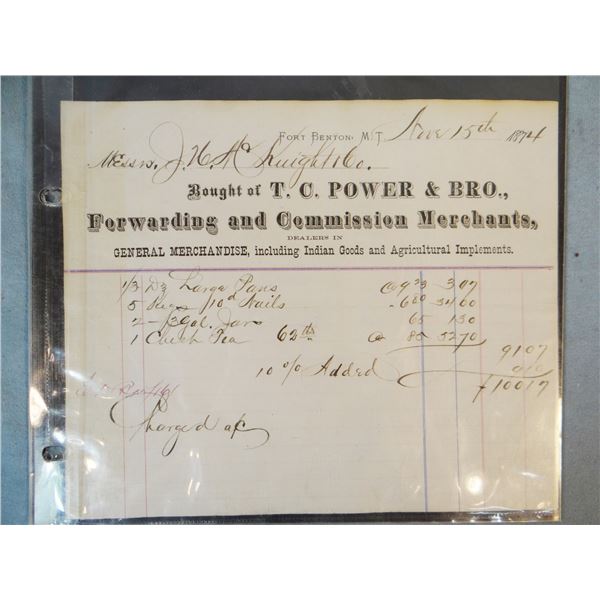 Fort Benton, M.T. Nov 15th 1874
Messrs. J. H. Mc Knight & Co.
Bought of T. C. POWER & BRO.,
Forwarding and Commission Merchants,
DEALERS IN
GENERAL MERCHANDISE, including Indian Goods and Agricultural Implements.
1/3 Dz Large Pans @ 9 23 3 07
5 Kegs 10d Nails 6 80 34 00
2 - Gal. Jars 65 1 30
1 Chest Tea 62 lbs @ 85 52 70
91 07
10 % Added 9 10
100 17
Charged a/c